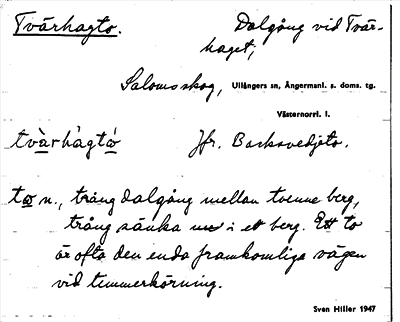 Tvärhagto.
Dalgång vid Tvär-
haget,
Salomsskog, Ullångers sn, Ångermanl. s. doms. tg.
Västernorrl. l.
tvàrhàgtó Jfr. Barksvedjeto.
to n., trång dalgång mellan tvenne berg,
trång sänka i ett berg. Ett to
är ofta den enda framkomliga vägen
vid timmerkörning.
Sven Hiller 1947